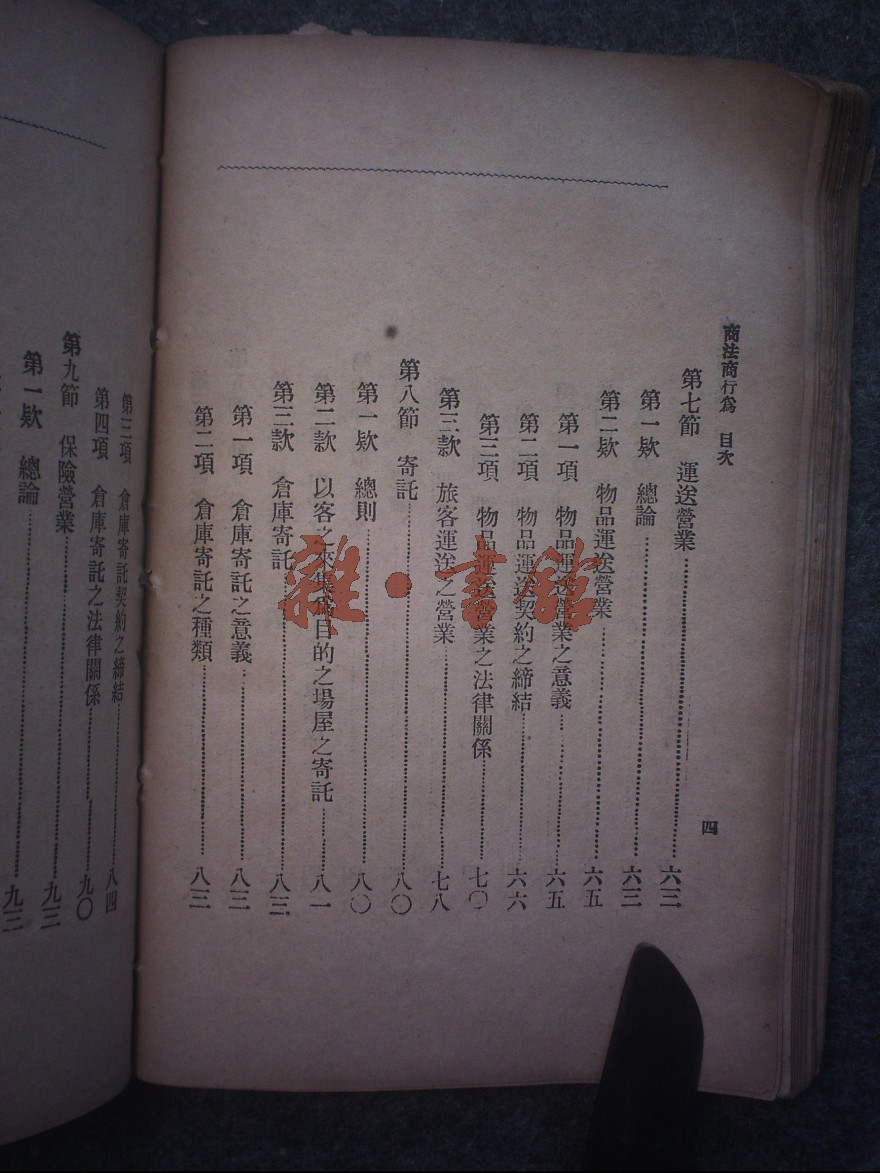 商法商行爲　目次
四
第七節　運送營業…………六三
第一欵　總論…………六三
第二欵　物品運送營業…………六五
第一項　物品運送營業之意義…………六五
第二項　物品運送契約之締結…………六六
第三項　物品運送營業之法律關係…………七〇
第三款　旅客運送之營業…………七八
第八節　寄託…………八〇
第一欵　總則…………八〇
第二款　以客之來集爲目的之場屋之寄託…………八一
第三款　倉庫寄託…………八三
第一項　倉庫寄託之意義…………八三
第二項　倉庫寄託之種類…………八三
第三項　倉庫寄託契約之締結…………八四
第四項　倉庫寄託之法律關係…………九〇
第九節　保險營業…………九三
第一欵　總論…………九三
雜·書館